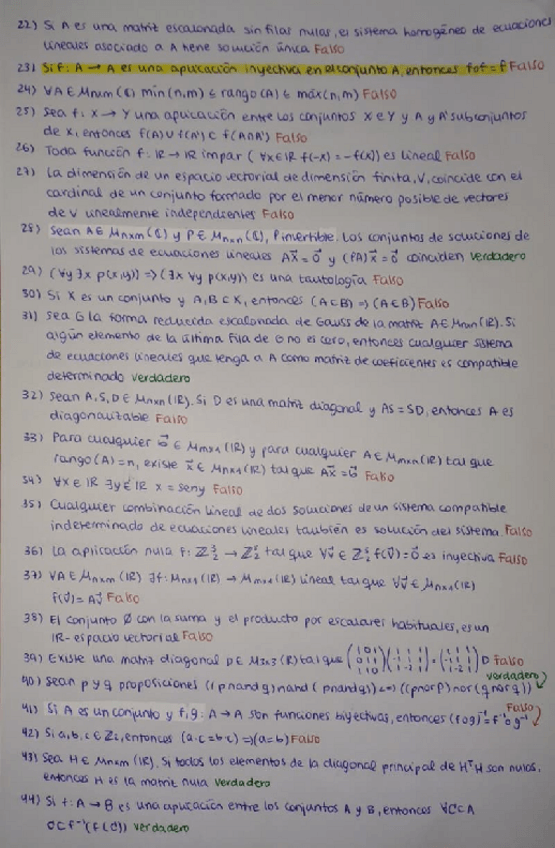 22) Si A es una matriz escalonada sin filas nulas, el sistema homogéneo de ecuaciones
lineales asociado a A tiene solución única Falso
23) Si f: A → A es una aplicación inyectiva en el conjunto A, entonces f∘f = f Falso
24) ∀A∈ Mnxm(ℝ) min(n,m) ≤ rango(A) ≤ máx(n,m) Falso
25) Sea f: X → Y una aplicación entre los conjuntos X e Y y A y A' subconjuntos
de X, entonces f(A) ∪ f(A') ⊂ f(A∩A') Falso
26) Toda función f: ℝ → ℝ impar (∀x∈ℝ f(-x) = -f(x)) es lineal Falso
27) La dimensión de un espacio vectorial de dimensión finita, V, coincide con el
cardinal de un conjunto formado por el menor número posible de vectores
de V linealmente independientes Falso
28) Sean A∈ Mnxm(ℝ) y P∈ Mnxn(ℝ), P invertible. Los conjuntos de soluciones de
los sistemas de ecuaciones lineales Ax⃗ = 0⃗ y (PA)x⃗ = 0⃗ coinciden Verdadero
29) (∀y ∃x p(x,y)) => (∃x ∀y p(x,y)) es una tautología Falso
30) Si X es un conjunto y A, B ⊂ X, entonces (A⊂B) => (A∈B) Falso
31) Sea G la forma reducida escalonada de Gauss de la matriz A∈ Mnxn(ℝ). Si
algún elemento de la última fila de G no es cero, entonces cualquier sistema
de ecuaciones lineales que tenga a A como matriz de coeficientes es compatible
determinado Verdadero
32) Sean A, S, D∈ Mnxn(ℝ). Si D es una matriz diagonal y AS = SD, entonces A es
diagonalizable Falso
33) Para cualquier b⃗ ∈ Mmx1(ℝ) y para cualquier A∈ Mmxn(ℝ) tal que
rango(A) = n, existe x⃗ ∈ Mnx1(ℝ) tal que Ax⃗ = b⃗ Falso
34) ∀x∈ℝ ∃y∈ℝ x = seny Falso
35) Cualquier combinación lineal de dos soluciones de un sistema compatible
indeterminado de ecuaciones lineales también es solución del sistema. Falso
36) La aplicación nula f: tal que f(v⃗) = 0⃗ es inyectiva Falso
37) ∀A∈ Mnxm(ℝ) ∃f: Mnx1(ℝ) → Mmx1(ℝ) lineal tal que ∀v⃗ ∈ Mnx1(ℝ)
f(v⃗) = Av⃗ Falso
38) El conjunto ∅ con la suma y el producto por escalares habituales, es un
ℝ- espacio vectorial Falso
39) Existe una matriz diagonal D∈ M3x3(ℝ) tal que D Falso
40) Sean p y q proposiciones ((p nand q) nand (p nand q)) <=> ((p nor p) nor (q nor q)) Verdadero
41) Si A es un conjunto y f, g: A → A son funciones biyectivas, entonces (f∘g)⁻¹ = f⁻¹∘g⁻¹ Falso
42) Si a, b, c ∈ ℤ₂, entonces (a·c = b·c) => (a=b) Falso
43) Sea H∈ Mnxm(ℝ). Si todos los elementos de la diagonal principal de HᵀH son nulos,
entonces H es la matriz nula Verdadero
44) Si f: A → B es una aplicación entre los conjuntos A y B, entonces ∀C⊂A
C⊂f⁻¹(f(C)) Verdadero